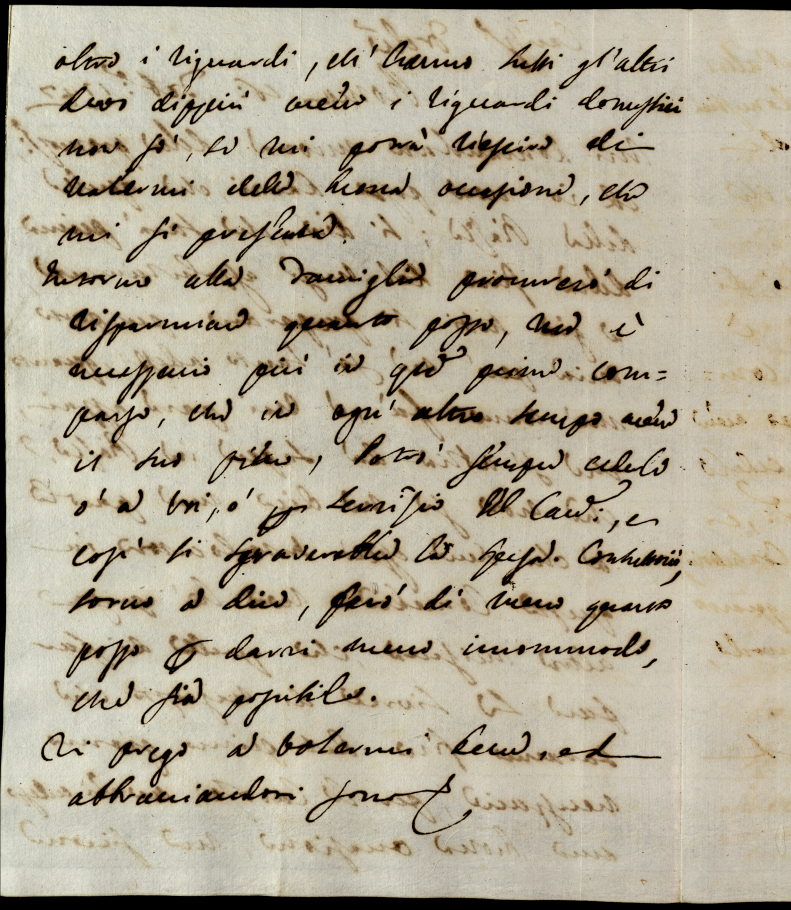 oltre i riguardi, ch' hanno tutti gl'altri
devo dippiù avere i riguardi domestici
non sò, se mi potrà riescire di
valermi della buona occasione, che
mi si presenta.
Intorno alla Famiglia procurerò di
risparmiare quanto posso, ma è
necessario più in questa prima com=
parsa, che in ogni altro tempo avere
il suo pieno, Potrò sempre cederlo
ò a voi, ò per servizio del Card:, e
così si sgraverebbe la spesa. Contuttociò,
torno a dire, farò di meno quanto
posso per darvi meno incommodo,
che sia possibile.
Vi prego a volermi bene, ed
abbracciandovi sono